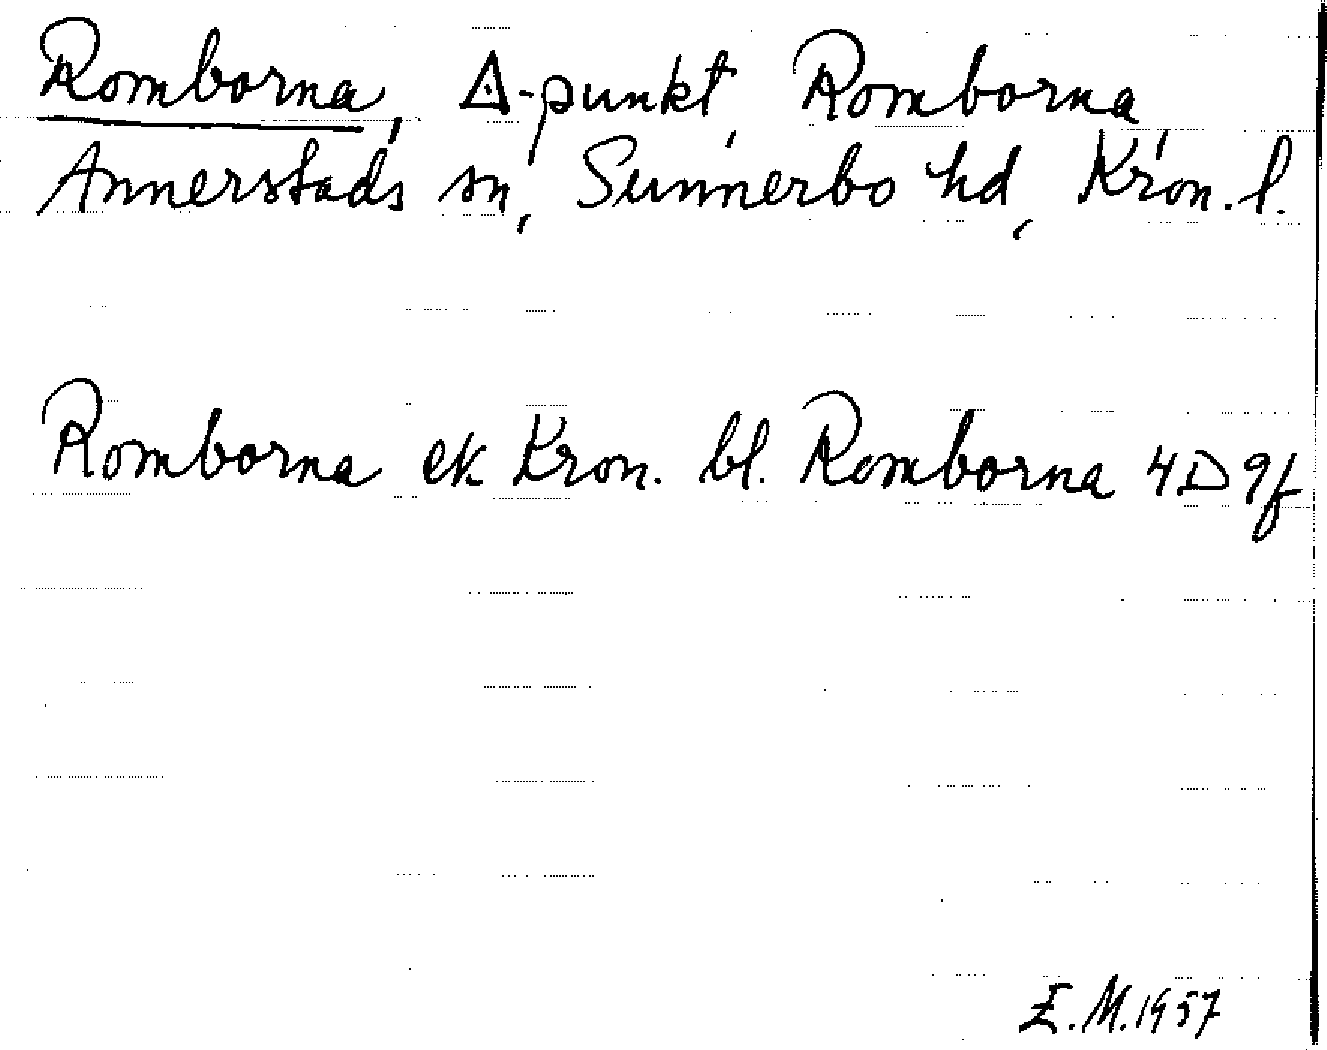 Romborna, △-punkt, Romborna,
Annerstads sn, Sunnerbo hd, Kron. l.
Romborna ek Kron. bl. Romborna 4D 9f
E.M. 1957